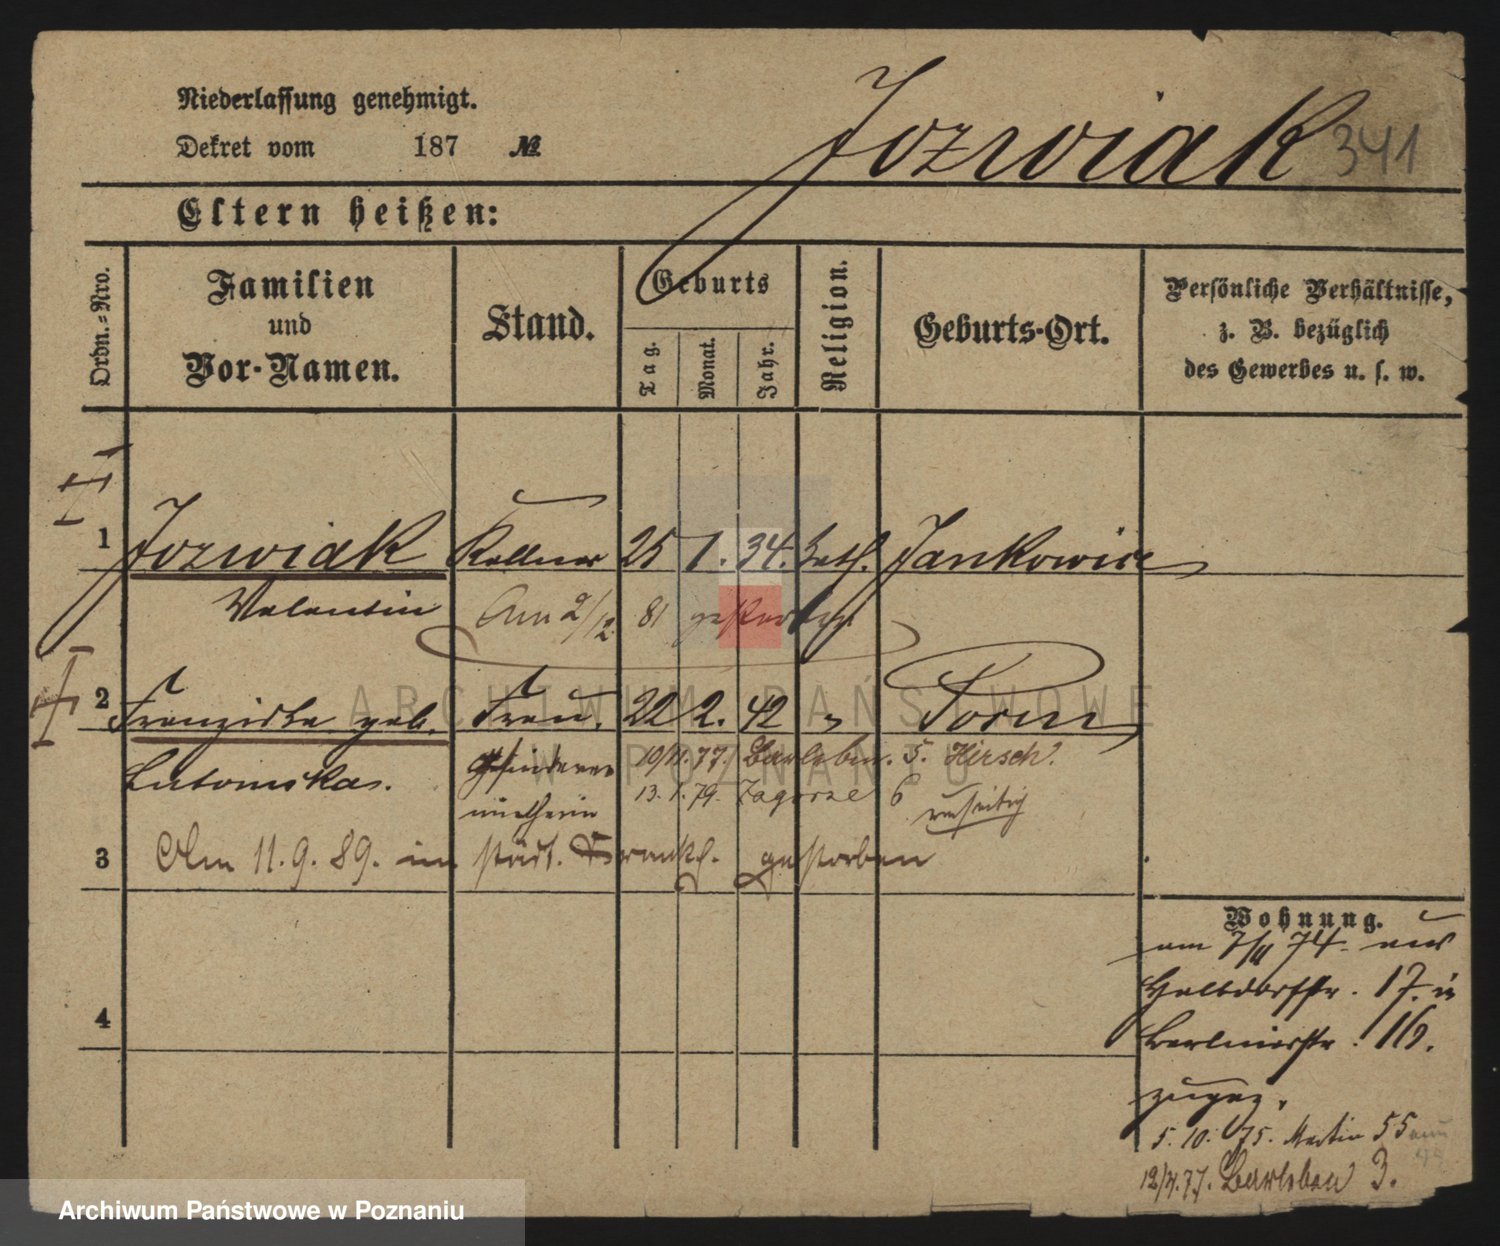 Niederlassung genehmigt.
Dekret vom 187 №
Jozwiak 341
Eltern heißen:
Ordn.-Nro.
Familien
und
Vor-Namen.
Stand.
Geburts
Tag.
Monat.
Jahr.
Religion.
Geburts-Ort.
Persönliche Verhältnisse,
z. B. bezüglich
des Gewerbes u. s. w.
1 Jozwiak Kellner 25 1. 34. kath. Jankowice
Valentin Am 2/12. 81 gestorben
2 Franziska geb. Frau. 22 2. 42 "
Lutomska. 10/11. 77. Barleben. 5. Hirsch.
13. 1. 79. Zagorze 6
3 Am 11. 9. 89. im städt. Krankh. gestorben
4
Wohnung.
am 7/11 74. aus
Halbdorfstr. 17. in
Berlinerstr. 16.
zugez.
5. 10. 75. Martin 55
12/4. 77. Barleben 3.
ARCHIWUM PAŃSTWOWE
W POZNANIU
Archiwum Państwowe w Poznaniu